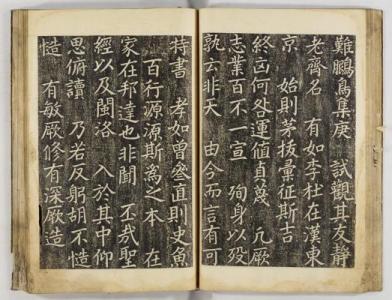 難鵬鳥集庚 試觀其友靜
老齊名 有如李杜在漢東
京 始則茅拔彙征斯吉
終凶何咎運値貞蔑 凡厥
志業百不一宣 殉身以歿
孰云非天 由今而言有可
特書 孝如曾參直則史魚
百行源源斯爲之本 在
家在邦達也非聞 丕哉聖
經以及閩洛 入於其中仰
思俯讀 乃若反躬胡不慥
慥 有敏厥修有深厥造